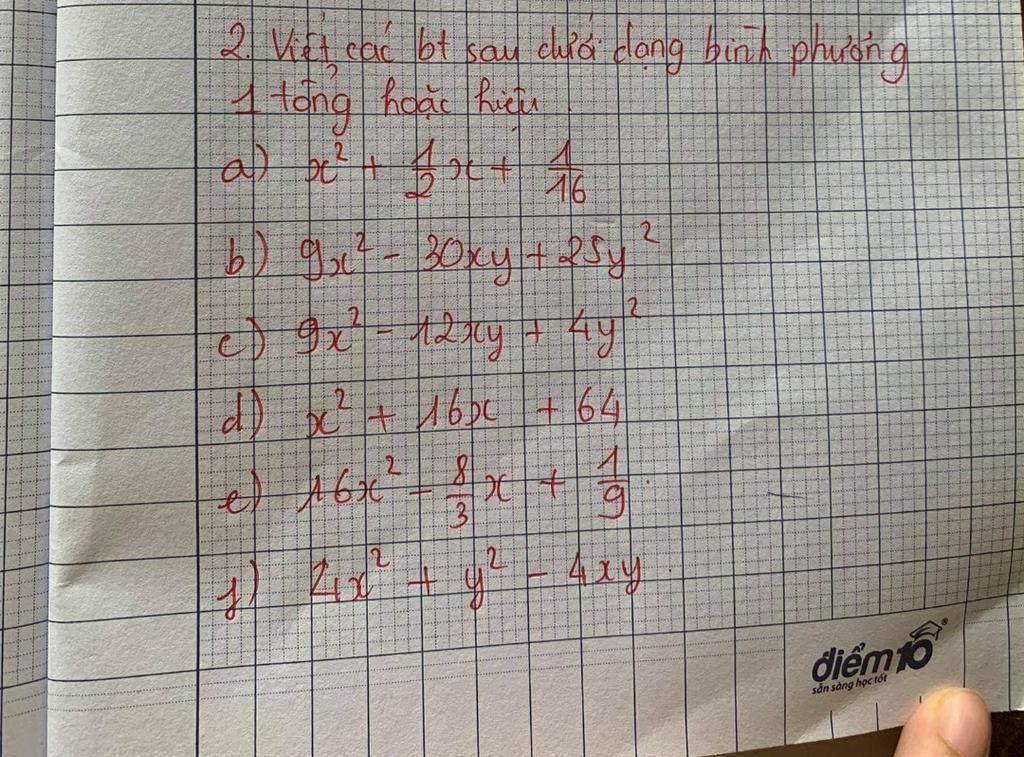 2. Viết các bt sau dưới dạng bình phương
1 tổng hoặc hiệu.
a) x² + 1/2 x + 1/16
b) 9x² - 30xy + 25y²
c) 9x² - 12xy + 4y²
d) x² + 16x + 64
e) 16x² - 8/3 x + 1/9
f) 4x² + y² - 4xy
điểm 10
sẵn sàng học tốt